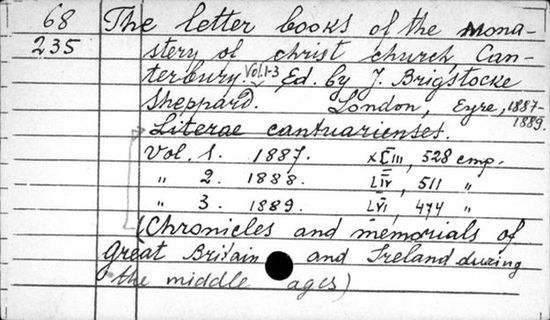 68 The letter books of the Mona-
235 stery of Christ Church, Can-
terbury. Vol. 1-3. Ed. by J. Brigstocke
Sheppard. London, Eyre, 1887-
1889.
Literae cantuarienses.
Vol. 1. 1887. 528 cmp.
" 2. 1888. LIV, 511 "
" 3. 1889. LVI, 474 "
(Chronicles and memorials of
great Britain and Ireland during
the middle ages)